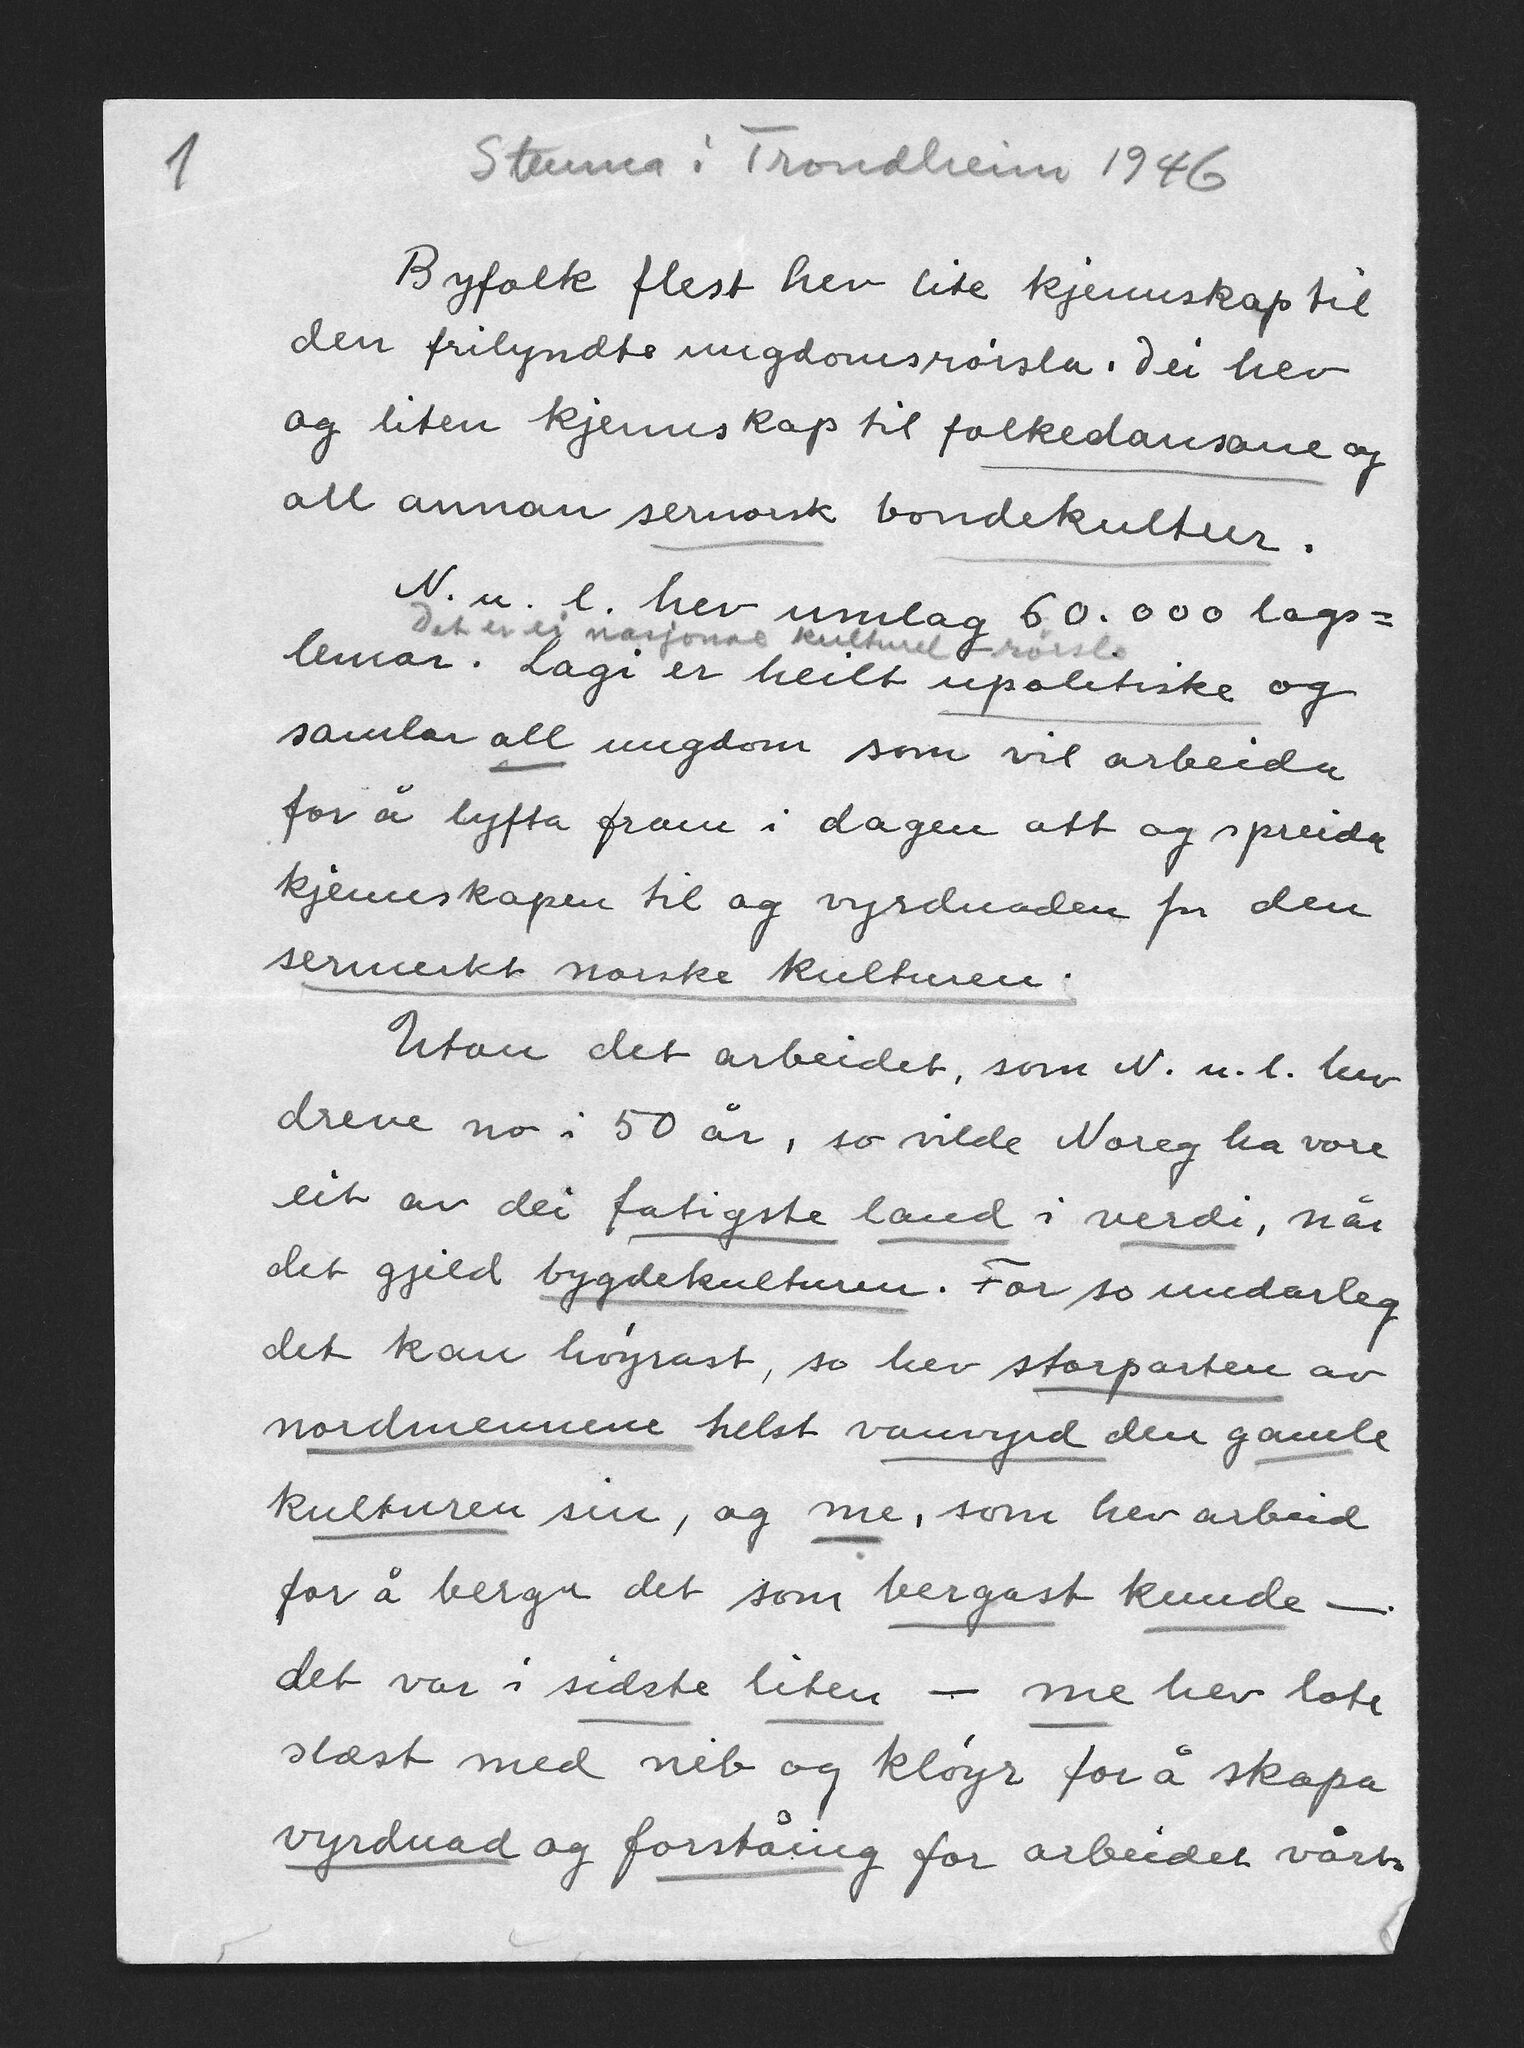 1
Stemna i Trondheim 1946
Byfolk flest hev lite kjennskap til
den frilyndte ungdomsrørsla. Dei hev
og liten kjennskap til folkedansane og
all annan sernorsk bondekultur.
N. u. l. hev umlag 60.000 lags=
Det er ei nasjonal kulturel rørsla
lemar. Lagi er heilt upolitiske og
samlar all ungdom som vil arbeida
for å lyfta fram i dagen att og spreida
kjennskapen til og vyrdnaden for den
sermerkt norske kulturen.
Utan det arbeidet, som N. u. l. hev
dreve no i 50 år, so vilde Noreg ha vore
eit av dei fatigste land i verdi, når
det gjeld bygdekulturen. For so underleg
det kan høyrast, so hev storparten av
nordmennene helst vanvyrd den gamle
kulturen sin, og me, som hev arbeid
for å berga det som bergast kunde —
det var i sidste liten — me hev lote
slæst med neb og kløyr for å skapa
vyrdnad og forståing for arbeidet vårt.